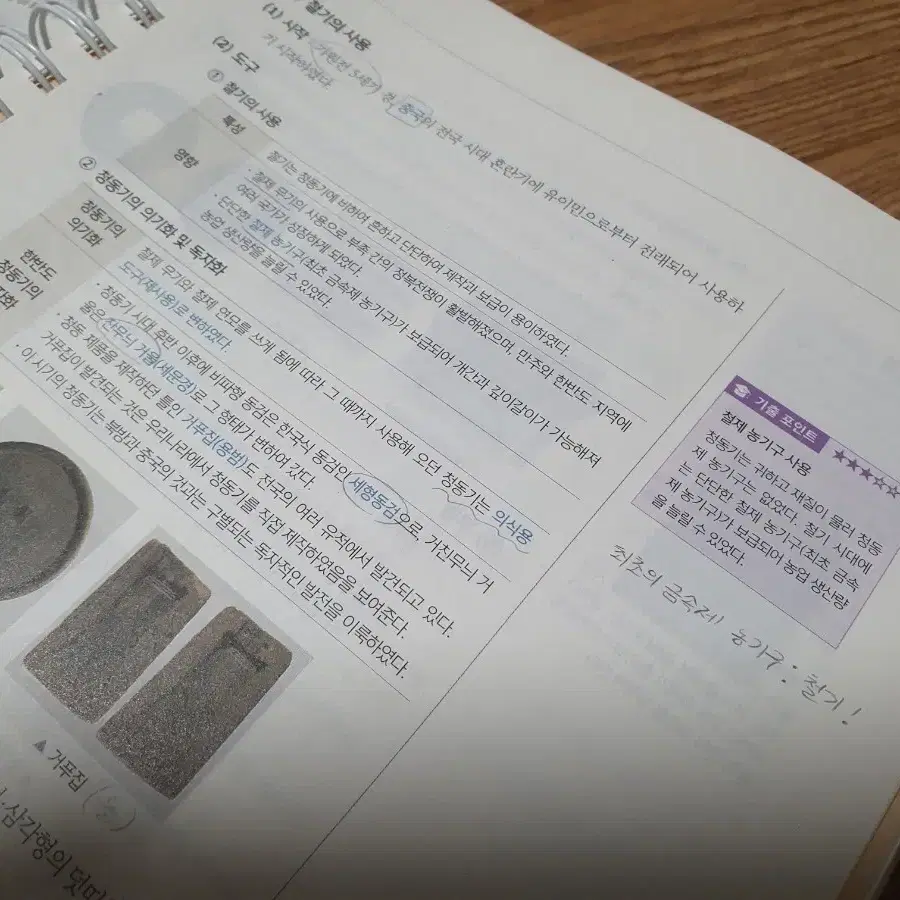 철기의 사용
(1) 시작 기원전 5세기 경, 중국의 전국 시대 혼란기에 유이민으로부터 전래되어 사용하
기 시작하였다.
(2) 도구
① 철기의 사용
특성
철기는 청동기에 비하여 흔하고 단단하여 제작과 보급이 용이하였다.
영향
· 철제 무기의 사용으로 부족 간의 정복전쟁이 활발해졌으며, 만주와 한반도 지역에
여러 국가가 성장하게 되었다.
· 단단한 철제 농기구(최초 금속제 농기구)가 보급되어 개간과 깊이갈이가 가능해져
농업 생산량을 늘릴 수 있었다.
② 청동기의 의기화 및 독자화
청동기의
의기화
철제 무기와 철제 연모를 쓰게 됨에 따라 그 때까지 사용해 오던 청동기는 의식용
도구(제사용)로 변하였다.
한반도
청동기의
자화
· 청동기 시대 후반 이후에 비파형 동검은 한국식 동검인 세형동검으로, 거친무늬 거
울은 잔무늬 거울(세문경)로 그 형태가 변하여 갔다.
· 청동 제품을 제작하던 틀인 거푸집(용범)도 전국의 여러 유적에서 발견되고 있다.
거푸집이 발견되는 것은 우리나라에서 청동기를 직접 제작하였음을 보여준다.
· 이 시기의 청동기는 북방과 중국의 것과는 구별되는 독자적인 발전을 이룩하였다.
▲ 거푸집
삼각형의 덧띠
기출 포인트 ★★★☆☆
철제 농기구 사용
청동기는 귀하고 재질이 물러 청동
제 농기구는 없었다. 철기 시대에
는 단단한 철제 농기구(최초 금속
제 농기구)가 보급되어 농업 생산량
을 늘릴 수 있었다.
최초의 금속제 농기구 : 철기!